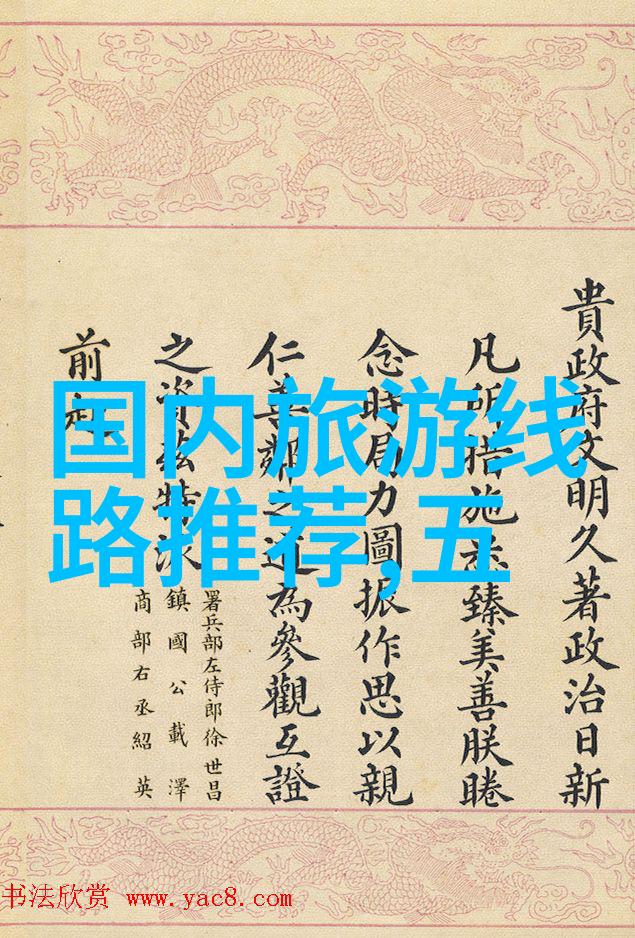 貴政府文明久著政治日新
凡所措施悉臻美善朕睠
念時局力圖振作思以親
仁善鄰之道為參觀互證
之資茲特派
署兵部左侍郎徐世昌
鎮國公載澤
商部右丞紹英
前赴
国内旅游线
路推荐,五
书法欣赏 www.yac8.com